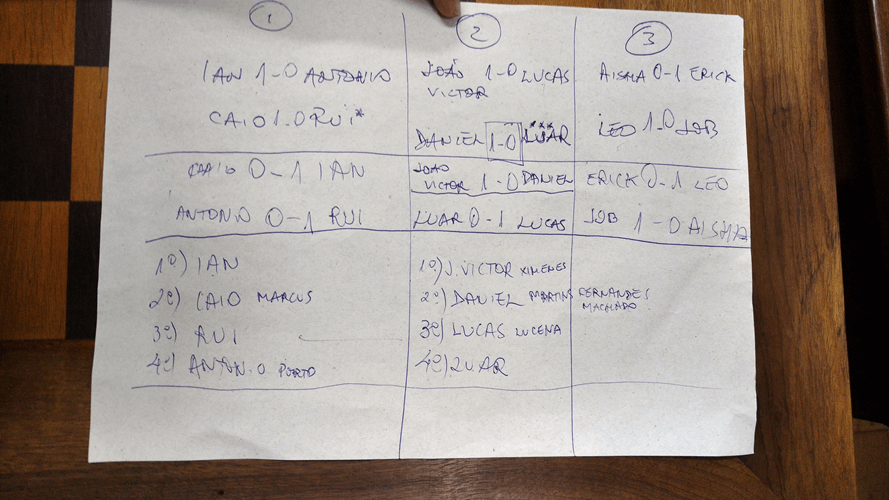 1
IAN 1-0 ANTONIO
CAIO 1-0 RUI*
CAAIO 0-1 IAN
ANTONIO 0-1 RUI
1º) IAN
2º) CAIO MARCUS
3º) RUI
4º) ANTONIO PORTO
2
JOÃO VICTOR 1-0 LUCAS
DANIEL 1-0 LUAR***
JOÃO VICTOR 1-0 DANIEL
LUAR 0-1 LUCAS
1º) J. VICTOR XIMENES
2º) DANIEL MARTINS FERNANDES
MACHADO
3º) LUCAS LUCENA
4º) LUAR
3
AISHA 0-1 ERICK
LEO 1-0 JOB
ERICK 0-1 LEO
JOB 1-0 AISHA